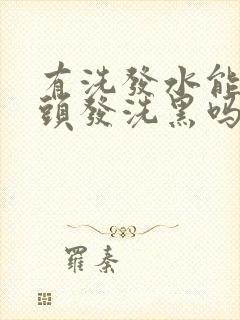 有洗發水能
頭發洗黑吗
羅素